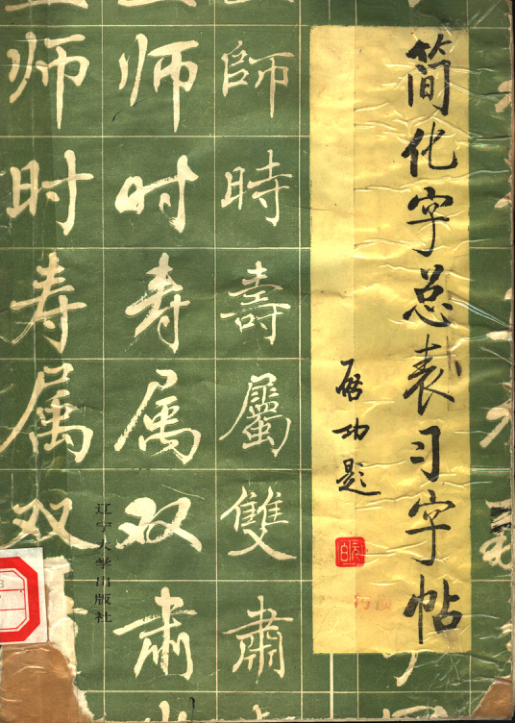 简化字总表习字帖
启功题
師時壽屬雙肅
师时寿属双肃
师时寿属双
辽宁大学出版社